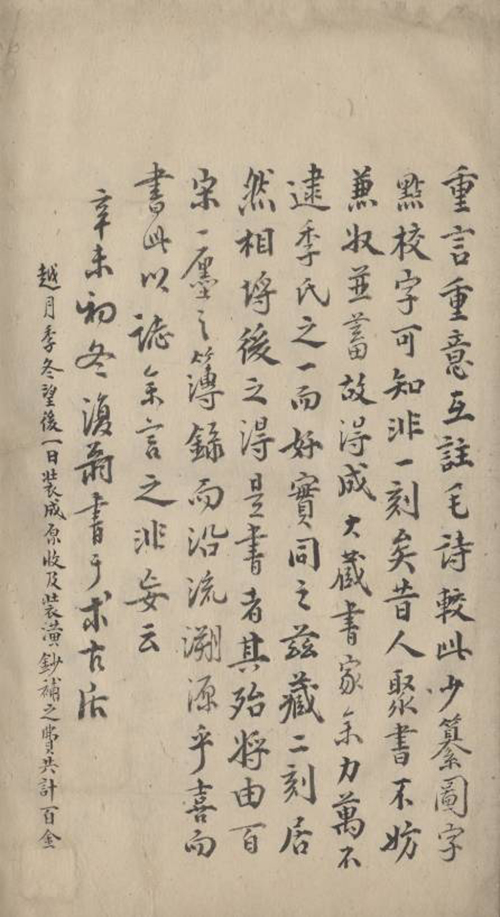 重言重意互註毛詩較此少纂圖字
點校字可知非一刻矣昔人聚書不妨
兼收並蓄故得成大藏書家余力萬不
逮季氏之一而好實同之茲藏二刻居
然相埒後之得是書者其殆將由百
宋一廛之簿錄而沿流溯源乎喜而
書此以誌余言之非妄云
辛未初冬復翁書于求古居
越月季冬望後一日裝成原收及裝潢鈔補之費共計百金